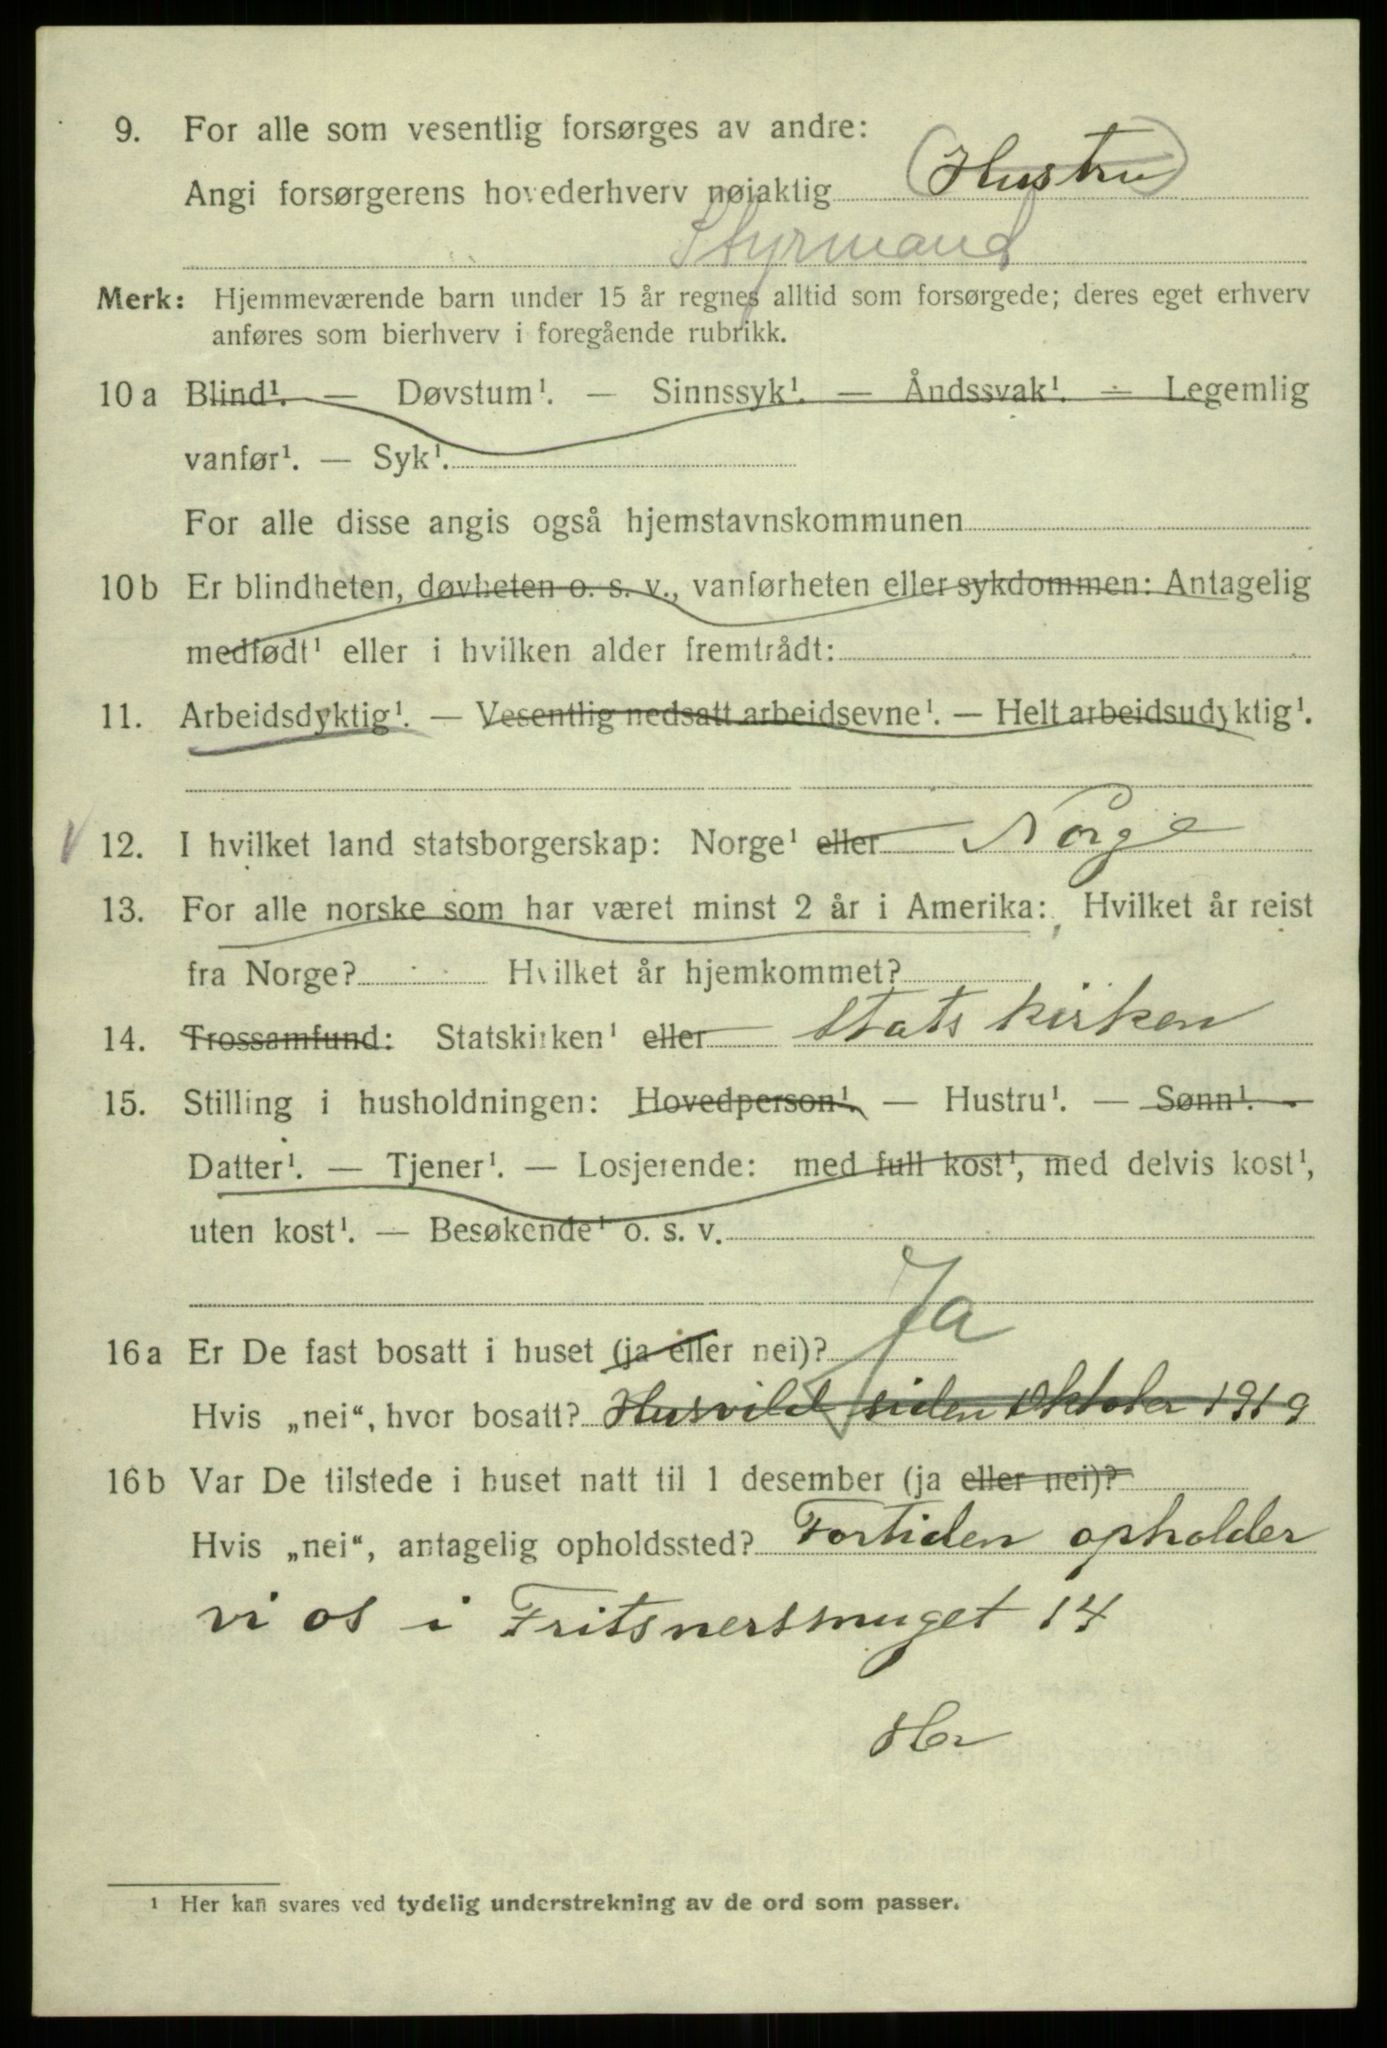 9. For alle som vesentlig forsørges av andre:
Angi forsørgerens hovederhverv nøiaktig (Hustru)
Styrmand
Merk: Hjemmeværende barn under 15 år regnes alltid som forsørgede; deres eget erhverv
anføres som bierhverv i foregående rubrikk.
10 a Blind¹. — Døvstum¹. — Sinnssyk¹. — Åndssvak¹. — Legemlig
vanfør¹. — Syk¹.
For alle disse angis også hjemstavnskommunen
10 b Er blindheten, døvheten o. s. v., vanførheten eller sykdommen: Antagelig
medfødt¹ eller i hvilken alder fremtrådt:
11. Arbeidsdyktig¹. — Vesentlig nedsatt arbeidsevne¹. — Helt arbeidsudyktig¹.
V 12. I hvilket land statsborgerskap: Norge¹ eller Norge
13. For alle norske som har været minst 2 år i Amerika: Hvilket år reist
fra Norge? Hvilket år hjemkommet?
14. Trossamfund: Statskirken¹ eller Statskirken
15. Stilling i husholdningen: Hovedperson¹. — Hustru¹. — Sønn¹. -
Datter¹. — Tjener¹. — Losjerende: med full kost¹, med delvis kost¹,
uten kost¹. — Besøkende¹ o. s. v.
16 a Er De fast bosatt i huset (ja eller nei)? Ja
Hvis „nei“, hvor bosatt? Husvild siden Oktober 1919
16 b Var De tilstede i huset natt til 1 desember (ja eller nei)?
Hvis „nei“, antagelig opholdssted? Fortiden opholder
vi os i Fritsnersmuget 14
¹ Her kan svares ved tydelig understrekning av de ord som passer.